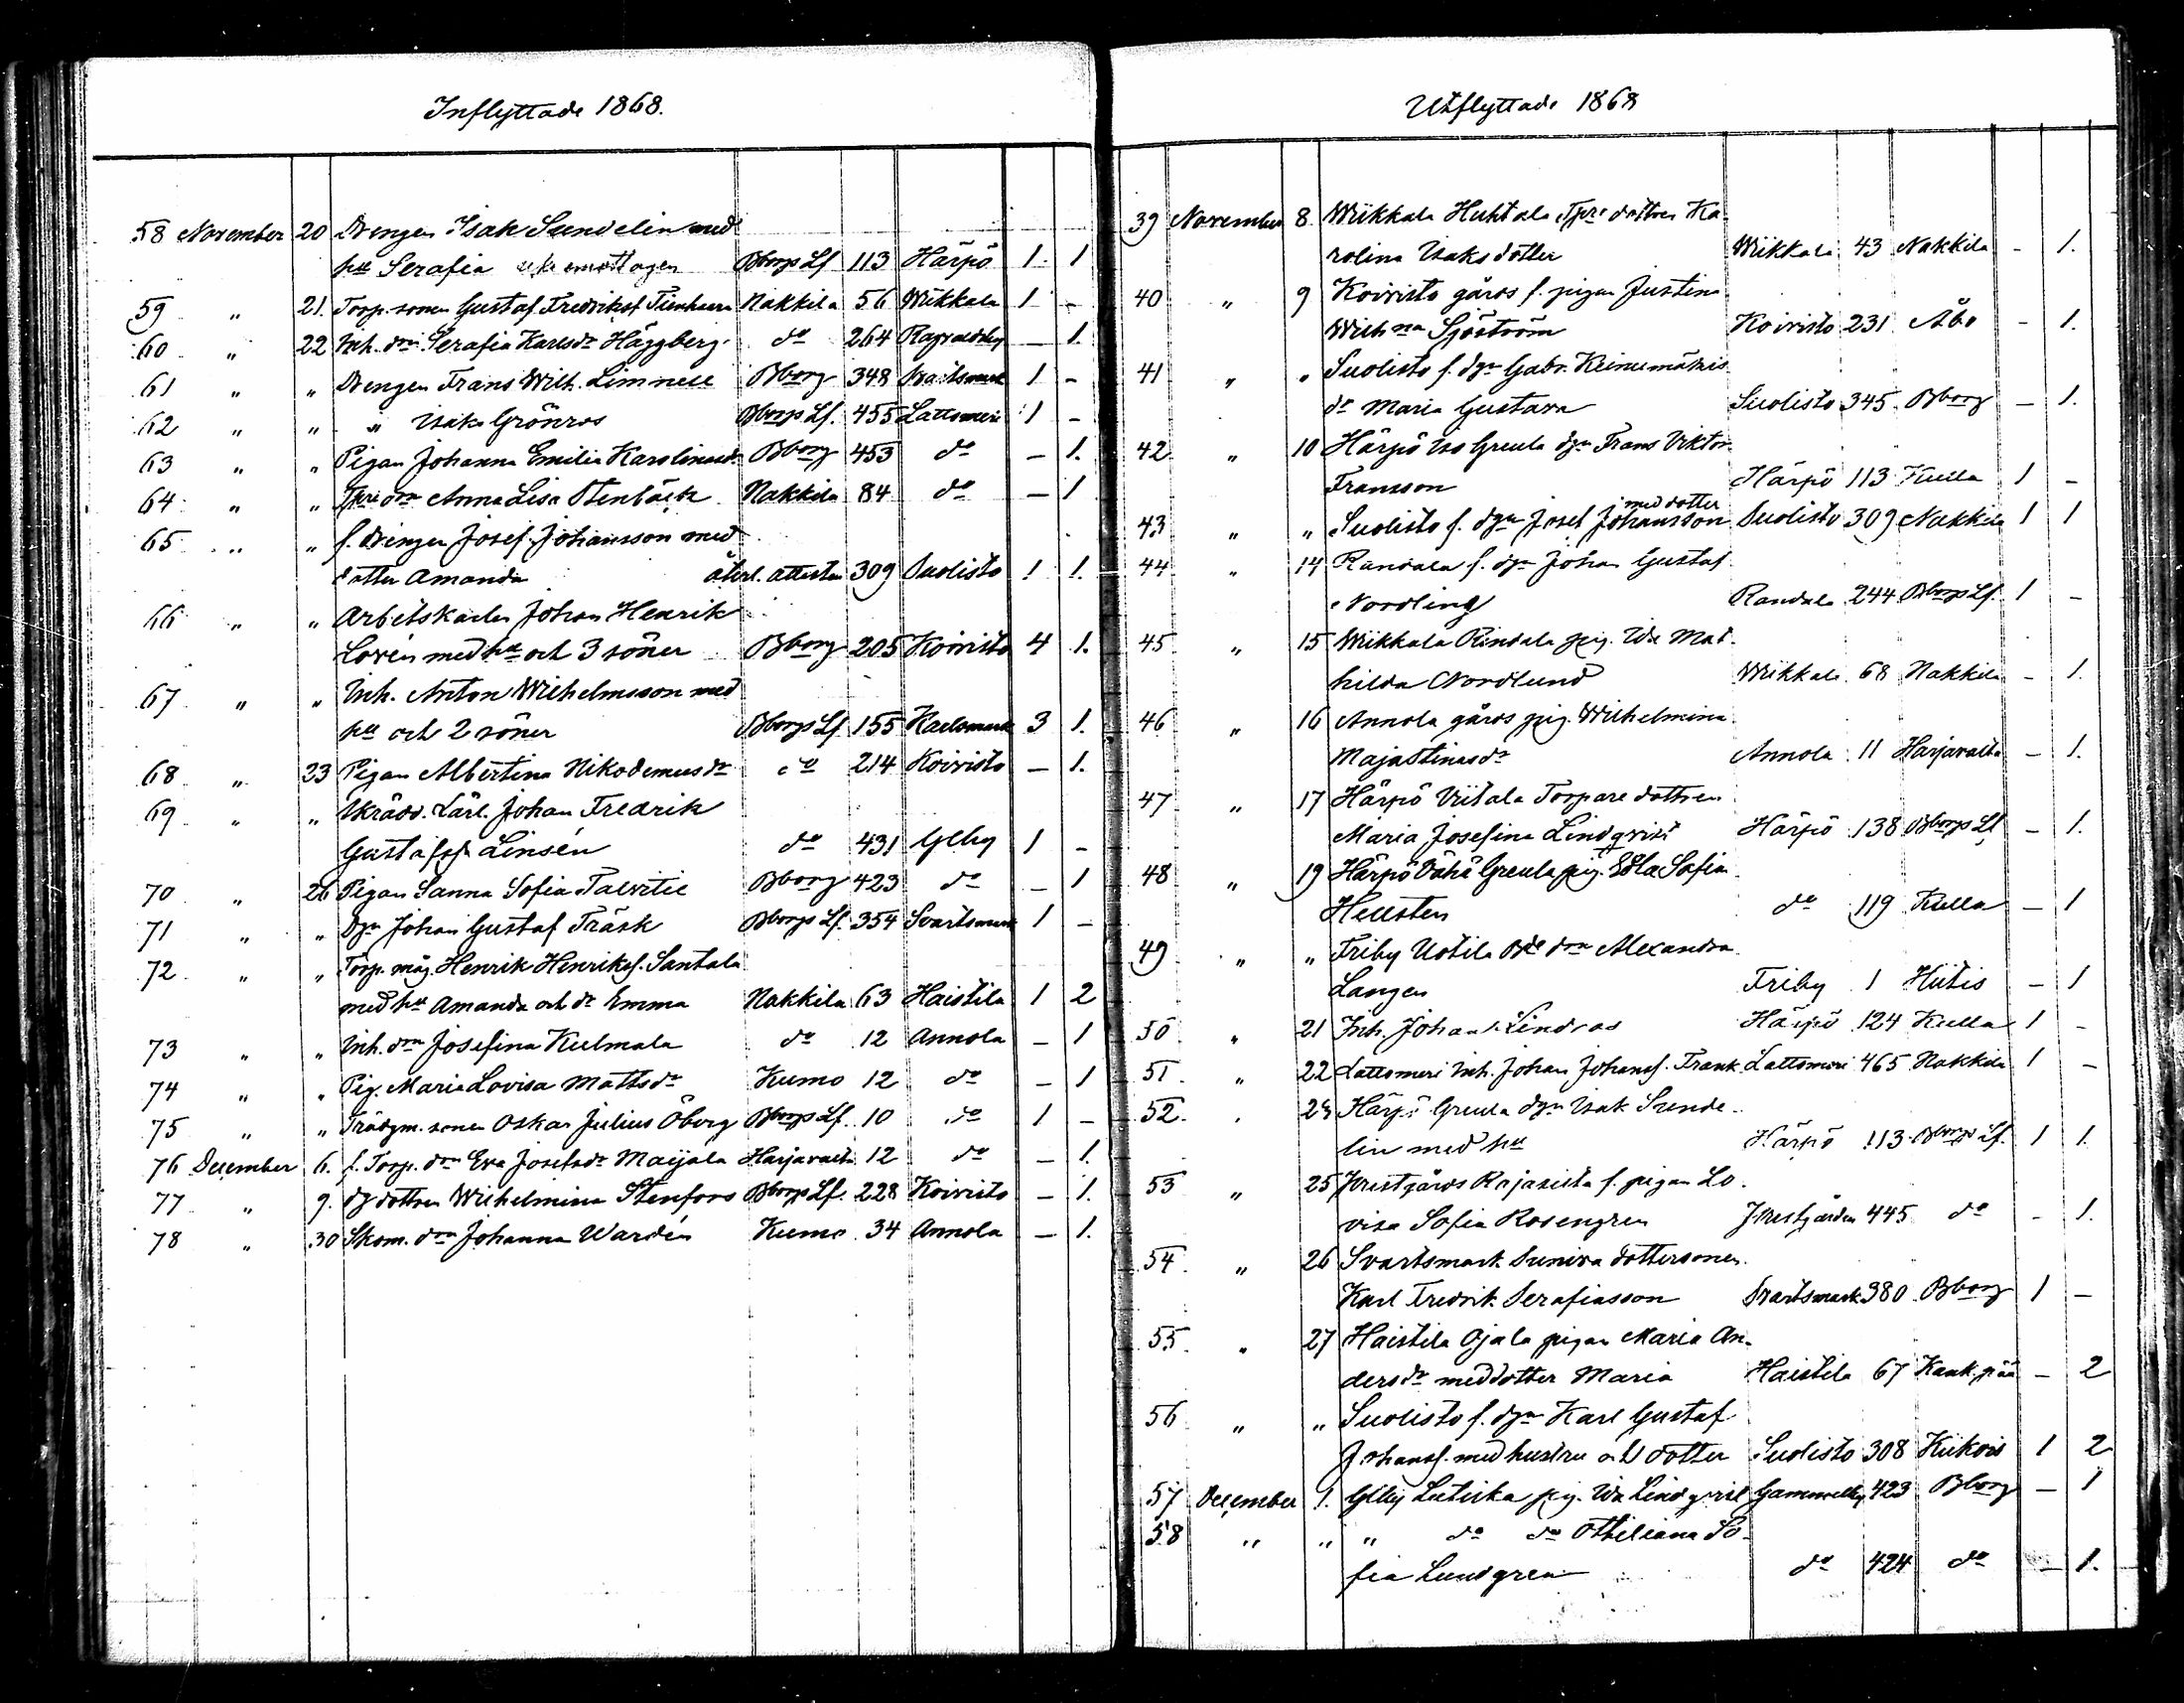 Inflyttade 1868.
58 November 20 Drengen Isak Sundelin med
hu Serafia Bborgs Lf 113 Härpö 1. 1
59 " 21. Torp. sonen Gustaf Fredriksf. Nakkila 56 Wiikkala 1 -
60 " 22 Inh. dtrn Serafia Karlsdr Häggberg. do 264 Ragvaldsby - 1.
61 " " Drengen Frans Wilh. Limnell Bborg 348 Svartsmark 1 -
62 " " " Isak Grönros Bborgs Lf. 455 Lattomeri 1 -
63 " " Pigan Johanna Emilia Karolinasdr Bborg 453 do - 1.
64 " " Tpredrn Anna Lisa Stenbäck Nakkila 84 do - 1
65 " " f. drengen Josef Johansson med
dotter Amanda återl. attesten 309 Suolisto 1 1.
66 " " Arbetskarlen Johan Henrik
Lovén med hu och 3 söner Bborg 205 Koivisto 4 1.
67 " " Inh. Anton Wilhelmsson med
hu och 2 söner Bborgs Lf. 155 Karlsmark 3 1.
68 " 23 Pigan Albertina Nikodemusdr do 214 Koivisto - 1.
69 " " Skrädd. Lärl. Johan Fredrik
Gustafsf. Linsén do 431 Glby 1 -
70 " 26 Pigan Sanna Sofia Talvitie Bborg 423 do - 1
71 " " Dgn Johan Gustaf Träsk Bborgs Lf. 354 Svartsmark 1 -
72 " " Torp. måg. Henrik Henriksf. Santala
med hu Amanda och dr Emma Nakkila 63 Haistila 1 2
73 " " Inh. drn Josefina Kulmala do 12 Annola - 1
74 " " Pig. Maria Lovisa Mattsdr Kumo 12 do - 1
75 " " Trädgm. sonen Oskar Julius Öberg Bborgs Lf. 10 do 1 -
76 December 6. f. Torp. drn Eva Josefsdr Maijala Harjavalta 12 do - 1.
77 " 9. dg dottren Wilhelmina Stenfors Bborgs Lf. 228 Koivisto - 1.
78 " 30 Skom. drn Johanna Wardén Kumo 34 Annola - 1.
Utflyttade 1868
39 November 8. Wiikkala Huhtala Tpre dottren Ka-
rolina Isaksdotter Wiikkala 43 Nakkila - 1.
40 " 9 Koivisto gårds f. pigan Justina
Wilhna Sjöström Koivisto 231 Åbo - 1.
41 " " Suolisto f. dgn Gabr. Keinumäkis
dr Maria Gustava Suolisto 345 Bborg - 1.
42 " 10 Härpö Iso Greula dgn Frans Viktor
Fransson Härpö 113 Kulla 1 -
med dotter
43 " " Suolisto f. dgn Josef Johansson Suolisto 309 Nakkila 1 1
44 " 14 Randala f. dgn Johan Gustaf
Nordling Randala 244 Bborgs Lf. 1 -
45 " 15 Wiikkala Rindala pig. Ida Mat-
hilda Nordlund Wiikkala 68 Nakkila - 1.
46 " 16 Annola gårds pig. Wilhelmina
Majastinasdr Annola 11 Harjavalta - 1.
47 " 17 Härpö Viitala Torpare dottren
Maria Josefina Lindqvist Härpö 138 Bborgs Lf - 1.
48 " 19 Härpö Vähä Greula pig. Edla Sofia
Hellsten do 119 Kulla - 1
49 " " Friby Uotila Bde drn Alexandra
Langen Friby 1 Hiitis - 1
50 " 21 Inh. Johan Lindroos Härpö 124 Kulla 1 -
51 " 22 Lattomeri Inh. Johan Johansf. Frank Lattomeri 465 Nakkila 1 -
52 . 23 Härpö Greula dgn Isak Sunde-
lin med hu Härpö 113 Bborgs Lf. 1 1.
53 " 25 Krestgårds Rajasilta f. pigan Lo-
visa Sofia Rosengren 445 do - 1.
54 " 26 Svartsmark Suniva dottersonen
Karl Fredrik Serafiasson Svartsmark 380 Bborg 1 -
55 " 27 Haistila Ojala pigan Maria An-
dersdr med dotter Maria Haistila 67 Kankpää - 2
56 " " Suolisto f. dgn Karl Gustaf
Johansf. med hustru och dotter Suolisto 308 Kiikois 1 2
57 December 1. Glby pig. Ida Lindqvist Gammelby 423 Bborg - 1
58 " " " do do Othiliana So-
fia Lundgren do 424 do - 1.